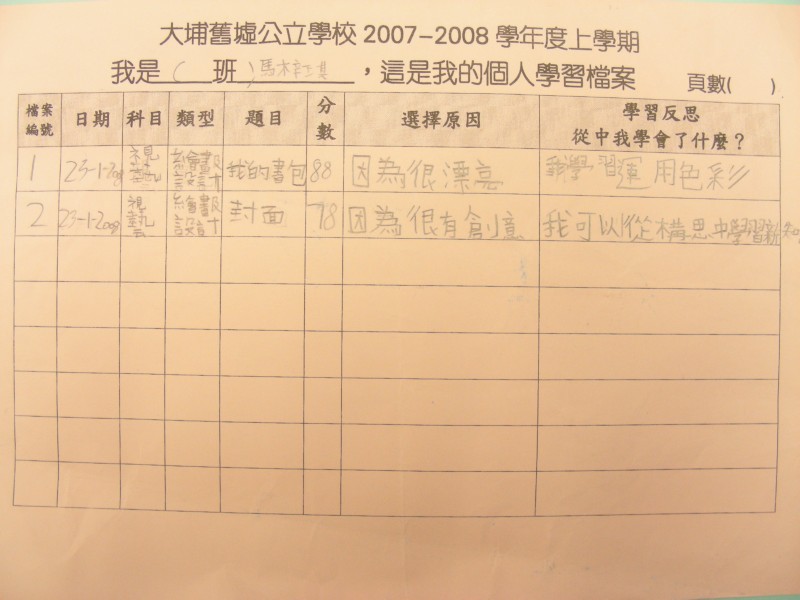 大埔舊墟公立學校 2007-2008 學年度上學期
我是 ( 班 ) 馬 ，這是我的個人學習檔案 頁數( )
檔案編號 日期 科目 類型 題目 分數 選擇原因 學習反思 從中我學會了什麼？
1 23-1-2008 視藝 繪畫及設計 我的書包 88 因為很漂亮 我學習運用色彩
2 23-1-2008 視藝 繪畫及設計 封面 78 因為很有創意 我可以從構思中學習新知